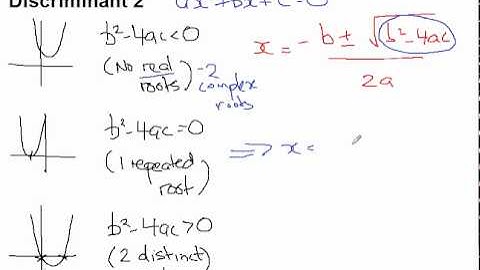 Discriminant 2 ax²+bx+c=0
b²-4ac<0
(No real roots) -2 complex roots
x = -b ± √b²-4ac
2a
b²-4ac=0
(1 repeated root)
=> x =
b²-4ac>0
(2 distinct)